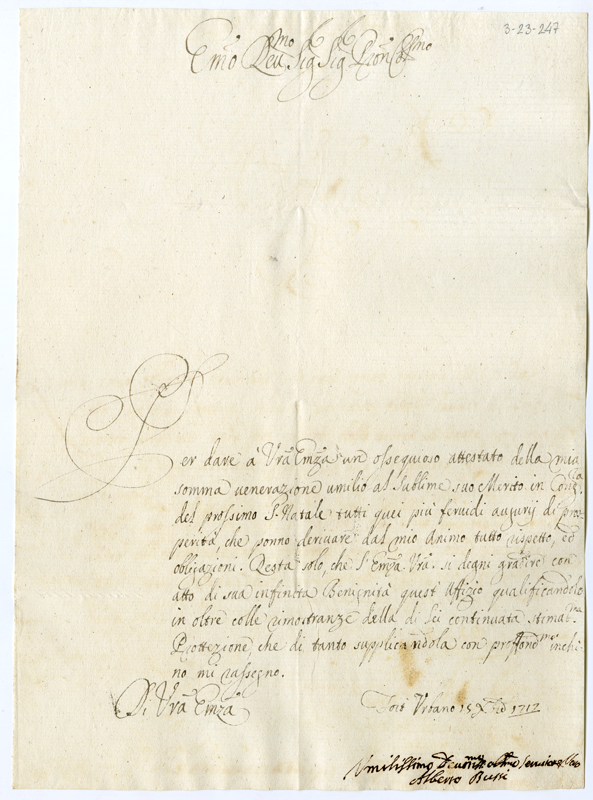 3-23-247
Emo Reu.mo Sig. Sig. Pron Col.mo
Per dare à Vrã Emzã un ossequioso attestato della mia
somma uenerazione umilio al sublime suo Merito in Cong.za
del prossimo S. Natale tutti quei più feruidi augurij di pros-
perità, che ponno deriuare dal mio Animo tutto rispetto, ed
obbligazioni. Resta solo, che l'Emzã Vrã si degni gradire con
atto di sua infinita Benignità quest Uffizio qualificandolo
in oltre colle rimostranze della di Lei continuata stimat.ma
Protezzione, che di tanto supplicandola con profond.mo inchi-
no mi rassegno.
Di Vrã Emzã
Fort Urbano 15 Xbre 1712
Umilissimo Deuotis.mo et Obl.mo Seruitore
Alberto Bussi